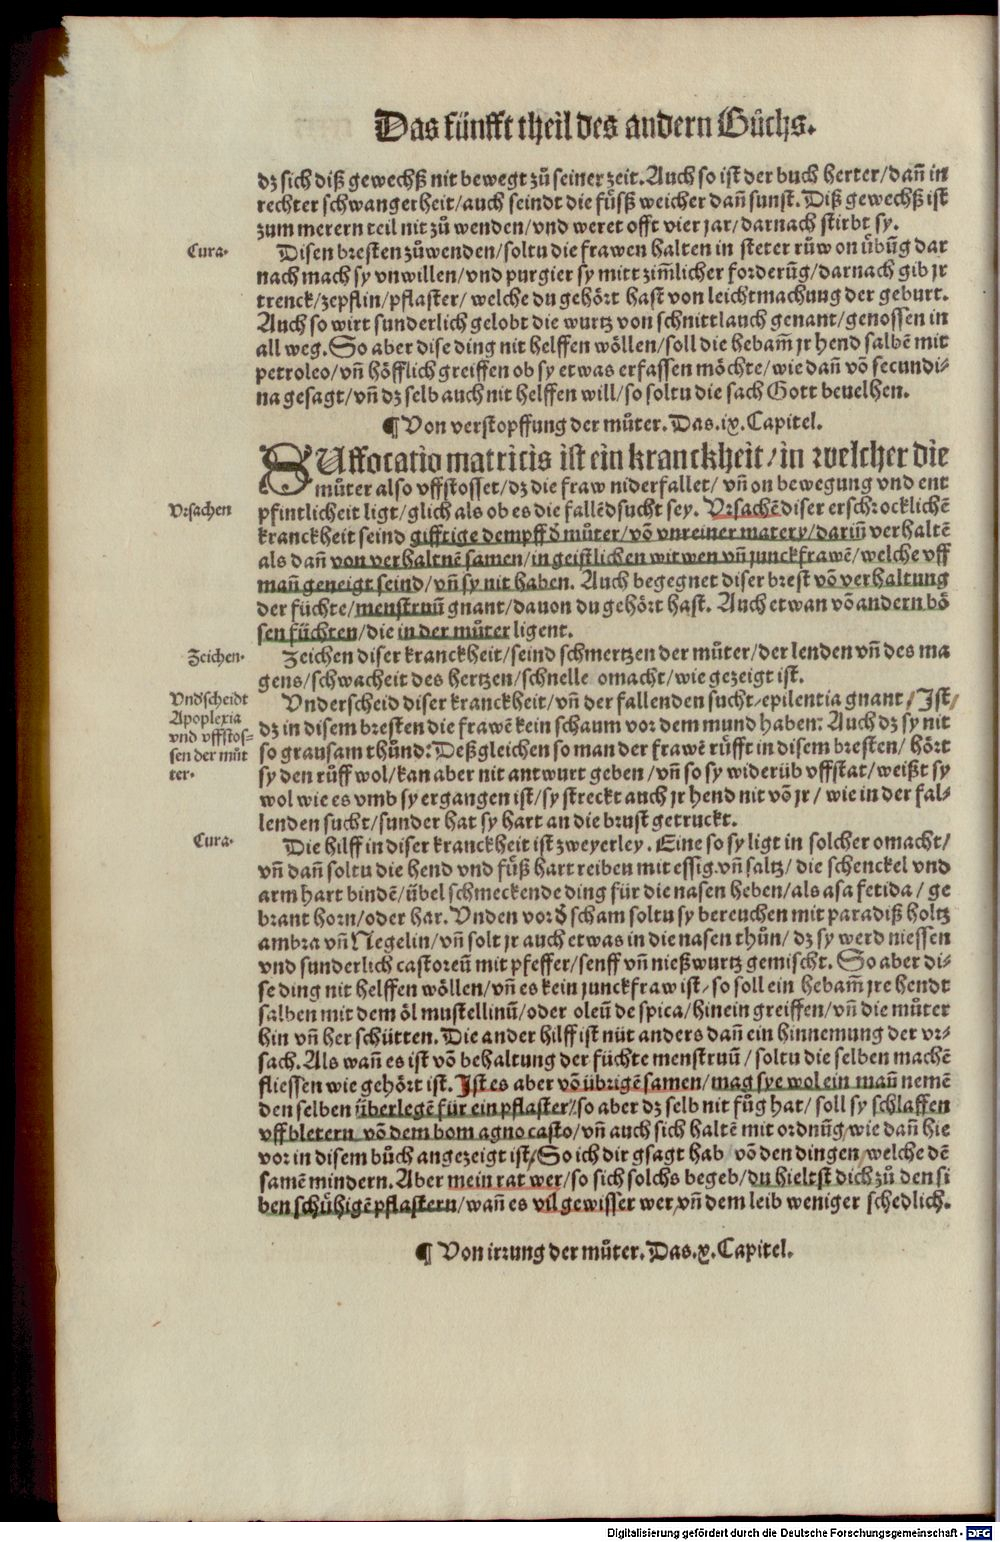 Das fünfft theil des andern Bůchs.
dz sich diß gewechß nit bewegt zů seiner zeit. Auch so ist der buch herter/dañ in
rechter schwangerheit/auch seindt die füsß weicher dañ sunst. Diß gewechß ist
zum merern teil nit zů wenden/vnd weret offt vier jar/darnach stirbt sy.
Cura.
Disen bresten zůwenden/soltu die frawen halten in steter růw on übũg dar
nach mach sy vnwillen/vnd purgier sy mitt zim̃licher forderũg/darnach gib jr
trenck/zepflin/pflaster/ welche du gehört hast von leichtmachung der geburt.
Auch so wirt sunderlich gelobt die wurtz von schnittlauch genant/genossen in
all weg. So aber dise ding nit helffen wöllen/soll die hebam̃ jr hend salbẽ mit
petroleo/vñ höfflich greiffen ob sy etwas erfassen möchte/wie dañ võ secundi-
na gesagt/vñ dz selb auch nit helffen will/so soltu die sach Gott beuelhen.
¶ Von verstopffung der můter. Das .ix. Capitel.
SUffocatio matricis ist ein kranckheit/in welcher die
můter also vffstosset/dz die fraw niderfallet/ vñ on bewegung vnd ent
Vrsachen
pfintlicheit ligt/glich als ob es die fallẽdsucht sey. Vrsachẽ diser erschrocklichẽ
kranckheit seind gifftige dempff d̄ můter/võ vnreiner matery/dariñ verhaltẽ
als dañ von verhaltnẽ samen/in geistlichen witwen vñ junckfrawẽ/welche vff
mañ geneigt seind/vñ sy nit haben. Auch begegnet diser brest võ verhaltung
der füchte/menstruũ gnant/dauon du gehört hast. Auch etwan võ andern bö
sen füchten/die in der můter ligent.
Zeichen.
Zeichen diser kranckheit/seind schmertzen der můter/der lenden vñ des ma
gens/schwacheit des hertzen/schnelle omacht/wie gezeigt ist.
Vndscheidt
Apoplexia
vnd vffstos-
sen der můt
ter.
Vnderscheid diser kranckheit/vñ der fallenden sucht/epilentia gnant/Ist/
dz in disem bresten die frawẽ kein schaum vor dem mund haben: Auch dz sy nit
so grausam thůnd: Deßgleichen so man der frawẽ růfft in disem bresten/ hört
sy den růff wol/kan aber nit antwurt geben/vñ so sy widerüb vffstat/weißt sy
wol wie es vmb sy ergangen ist/sy streckt auch jr hend nit võ jr/ wie in der fal-
lenden sucht/sunder hat sy hart an die brust getruckt.
Cura.
Die hilff in diser kranckheit ist zweyerley. Eine so sy ligt in solcher omacht/
vñ dañ soltu die hend vnd füß hart reiben mit essig vñ saltz/ die schenckel vnd
arm hart bindẽ/übel schmeckende ding für die nasen heben/als asa fetida/ ge
brant horn/oder har. Vnden vor d̄ scham soltu sy bereuchen mit paradiß holtz
ambra vñ Negelin/vñ solt jr auch etwas in die nasen thůn/ dz sy werd niessen
vnd sunderlich castoreũ mit pfeffer/senff vñ nießwurtz gemischt. So aber di-
se ding nit helffen wöllen/vñ es kein junckfraw ist/so soll ein hebam̃ jre hendt
salben mit dem öl mustellinũ/oder oleũ de spica/hinein greiffen/vñ die můter
hin vñ her schütten. Die ander hilff ist nüt anders dañ ein hinnemung der vr-
sach. Als wañ es ist võ behaltung der füchte menstruũ/ soltu die selben machẽ
fliessen wie gehört ist. Ist es aber võ übrigẽ samen/mag sye wol ein mañ nemẽ
den selben überlegẽ für ein pflaster/so aber dz selb nit fůg hat/ soll sy schlaffen
vff bletern võ dem bom agno casto/vñ auch sich haltẽ mit ordnũg/wie dañ hie
vor in disem bůch angezeigt ist/So ich dir gsagt hab võ den dingen/welche dẽ
samẽ mindern. Aber mein rat wer/so sich solchs begeb/du hieltst dich zů den si
ben schůhigẽ pflastern/wañ es vil gewisser wer/vñ dem leib weniger schedlich.
¶ Von irrung der můter. Das .x. Capitel.
Digitalisierung gefördert durch die Deutsche Forschungsgemeinschaft - DFG